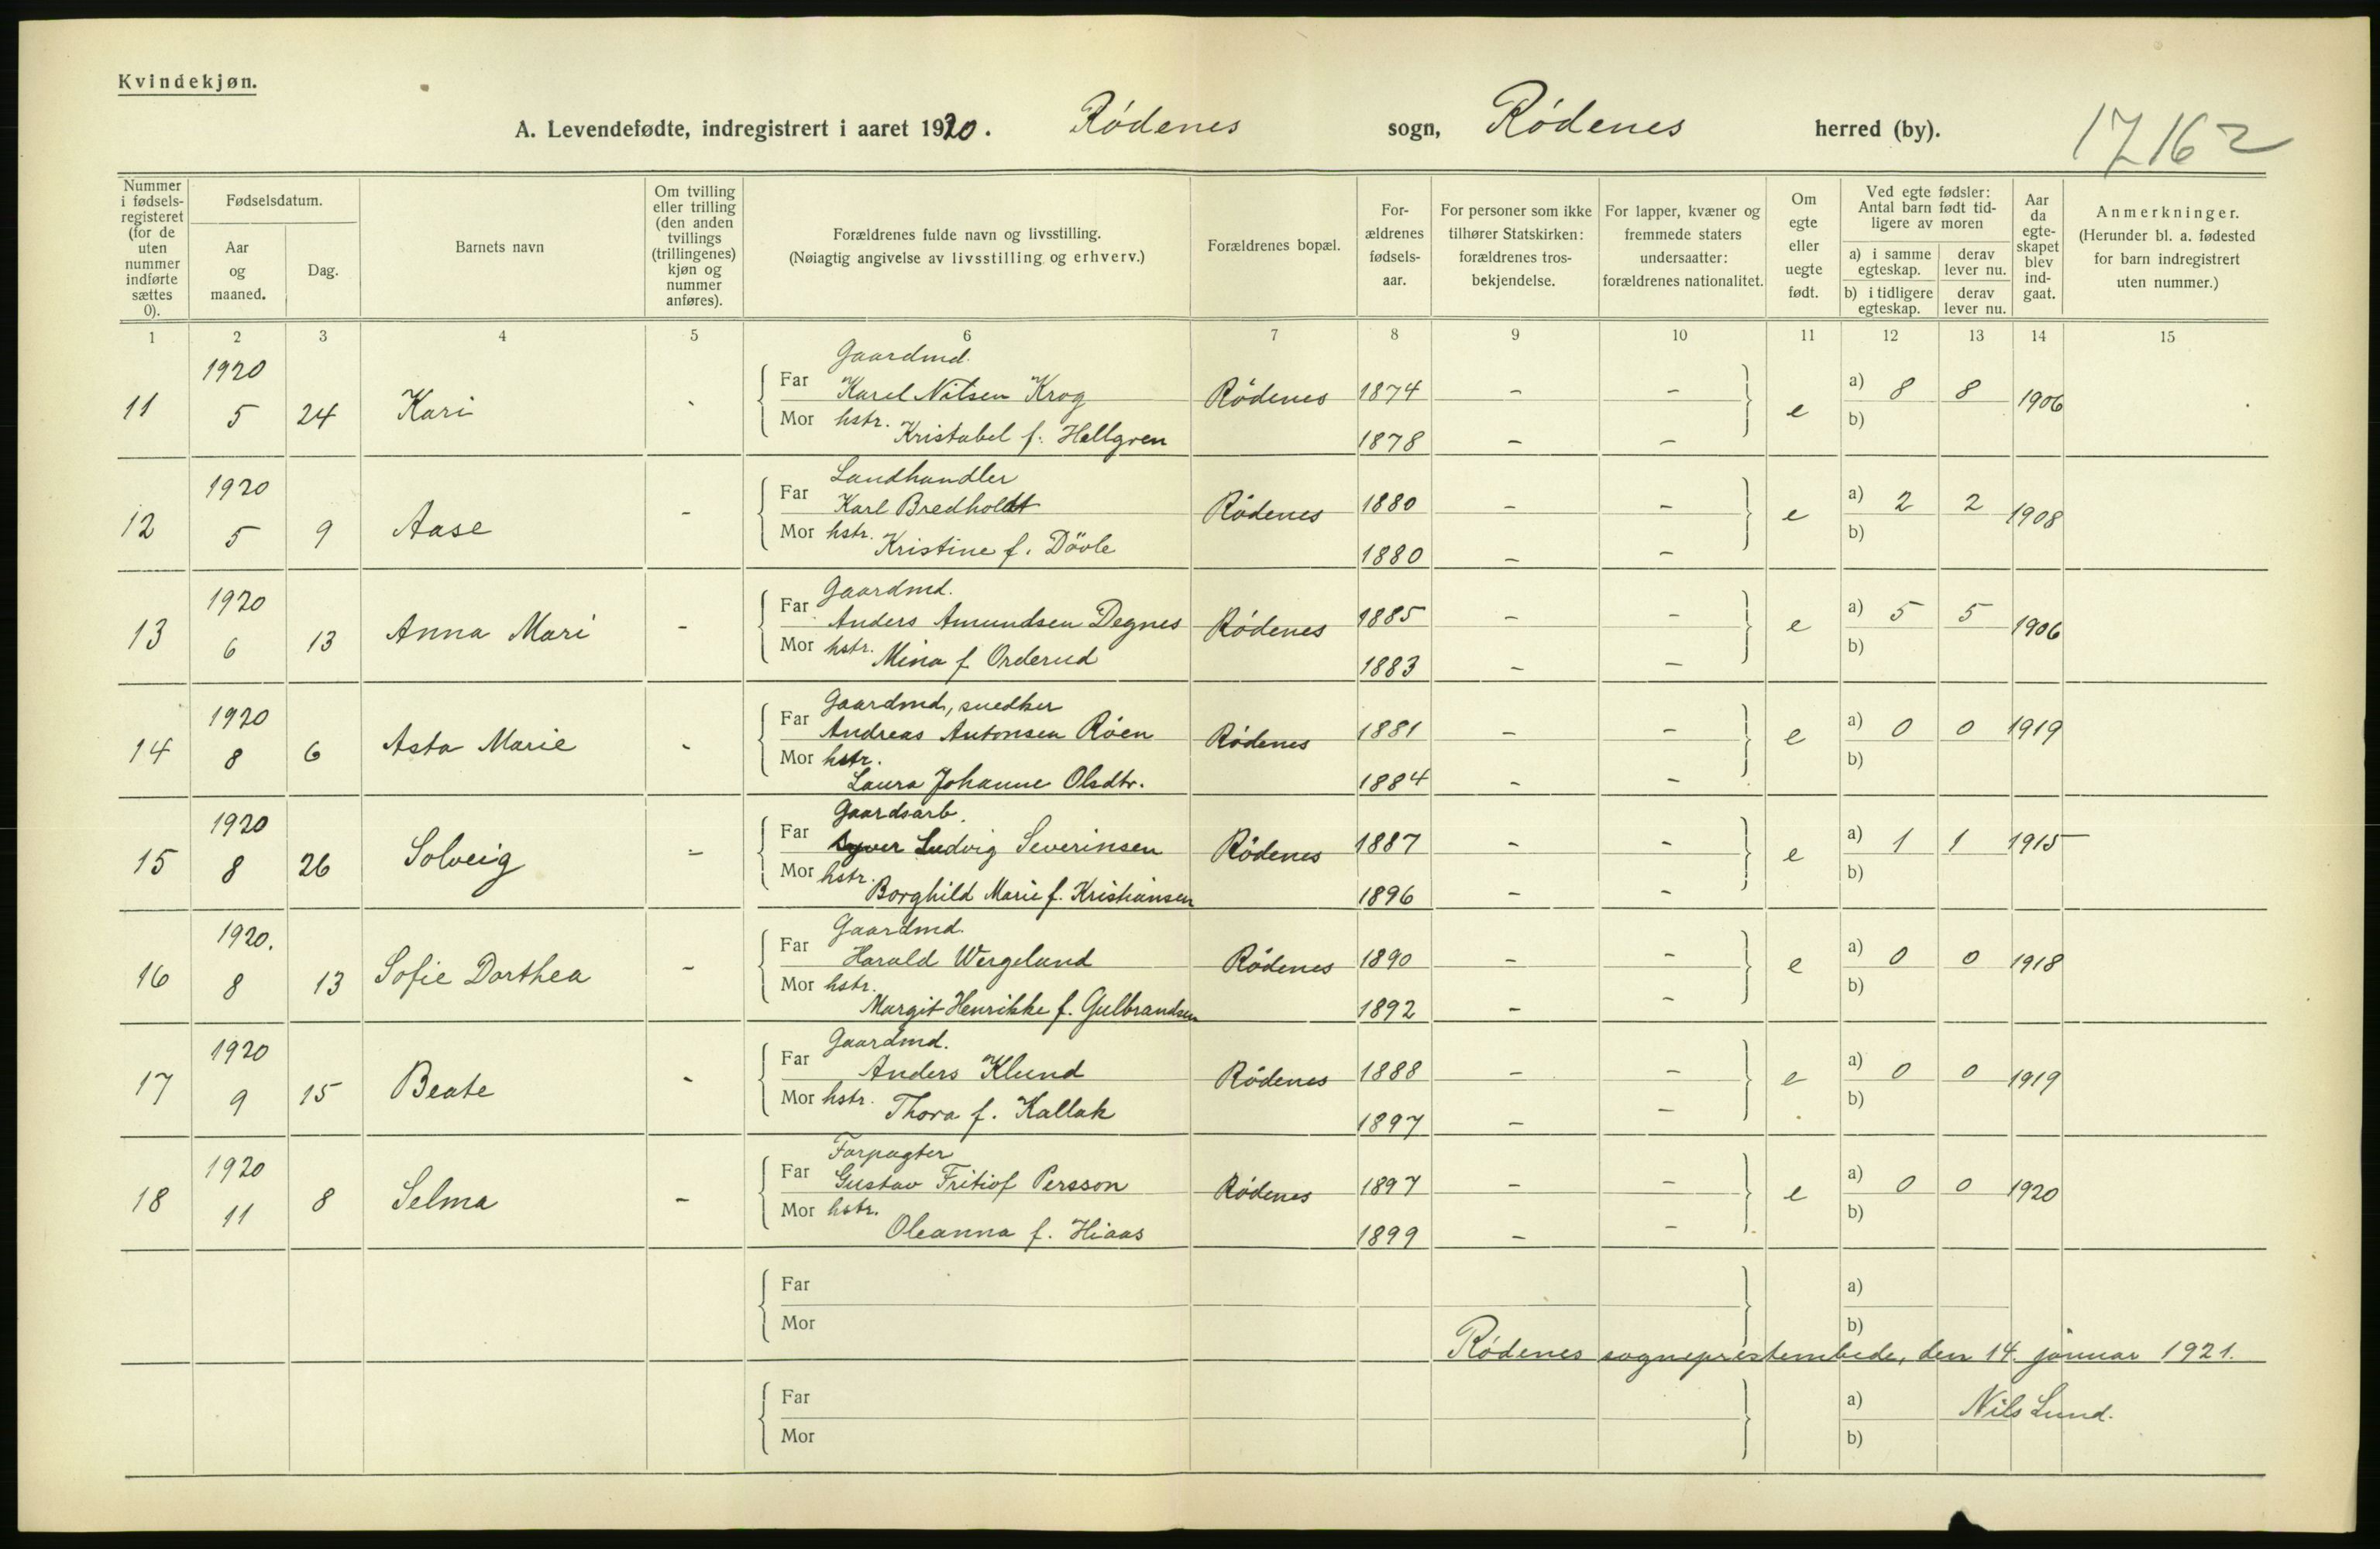 Kvindekjøn.
A. Levendefødte, indregistrert i aaret 1920. Rödenes sogn, Rödenes herred (by). 17162
Nummer i fødsels-registeret (for de uten nummer indførte sættes 0).
Fødselsdatum.
Aar og maaned.
Dag.
Barnets navn
Om tvilling eller trilling (den anden tvillings (trillingenes) kjøn og nummer anføres).
Forældrenes fulde navn og livsstilling.
(Nøiagtig angivelse av livsstilling og erhverv.)
Forældrenes bopæl.
For-ældrenes fødsels-aar.
For personer som ikke tilhører Statskirken: forældrenes tros-bekjendelse.
For lapper, kvæner og fremmede staters undersaatter: forældrenes nationalitet.
Om egte eller uegte født.
Ved egte fødsler: Antal barn født tid-ligere av moren
a) i samme egteskap. derav lever nu.
b) i tidligere egteskap. derav lever nu.
Aar da egte-skapet blev ind-gaat.
Anmerkninger.
(Herunder bl. a. fødested for barn indregistrert uten nummer.)
1 2 3 4 5 6 7 8 9 10 11 12 13 14 15
1920 Gaardmd.
11 5 24 Kari - Far Karel Nilsen Krog Rödenes 1874 - - e a) 8 8 1906
Mor hstr. Kristabel f. Hellgren 1878 - - b)
1920 Landhandler
12 5 9 Aase - Far Karl Bredholdt Rödenes 1880 - - e a) 2 2 1908
Mor hstr. Kristine f. Dövle 1880 - - b)
1920 Gaardmd.
13 6 13 Anna Mari - Far Anders Amundsen Degnes Rödenes 1885 - - e a) 5 5 1906
Mor hstr. Mina f Orderud 1883 - - b)
1920 Gaardmd, snedker
14 8 6 Asta Marie - Far Andreas Antonsen Röen Rödenes 1881 - - e a) 0 0 1919
Mor hstr. Laura Johanne Olsdtr. 1884 - - b)
1920 Gaardsarb.
15 8 26 Solveig - Far Syver Ludvig Severinsen Rödenes 1887 - - e a) 1 1 1915
Mor hstr. Borghild Marie f. Kristiansen 1896 - - b)
1920. Gaardmd.
16 8 13 Sofie Dorthea - Far Harald Wergelund Rödenes 1890 - - e a) 0 0 1918
Mor hstr. Margit Henrikke f. Gulbrandsen 1892 - - b)
1920 Gaardmd.
17 9 15 Beate - Far Anders Klund Rödenes 1888 - - e a) 0 0 1919
Mor hstr. Thora f. Kallak 1897 - - b)
1920 Forpagter
18 11 8 Selma - Far Gustav Fritiof Persson Rödenes 1897 - - e a) 0 0 1920
Mor hstr. Oleanna f. Hiaas 1899 - - b)
Far a)
Mor b)
Rödenes sogneprestembede, den 14. januar 1921.
Far a) Nils Lund.
Mor b)